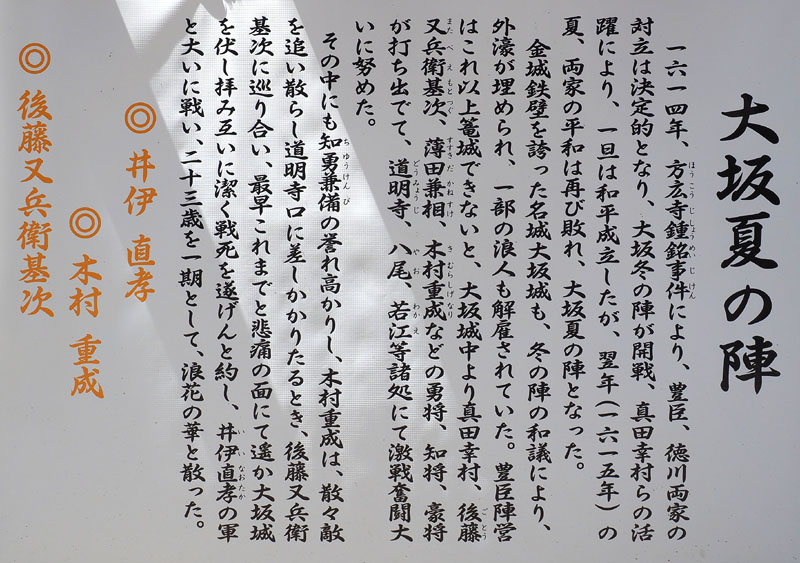 大坂夏の陣
一六一四年、方広寺鍾銘事件により、豊臣、徳川両家の
対立は決定的となり、大坂冬の陣が開戦、真田幸村らの活
躍により、一旦は和平成立したが、翌年(一六一五年)の
夏、両家の平和は再び敗れ、大坂夏の陣となった。
金城鉄壁を誇った名城大坂城も、冬の陣の和議により、
外濠が埋められ、一部の浪人も解雇されていた。豊臣陣営
はこれ以上篭城できないと、大坂城中より真田幸村、後藤
又兵衛基次、薄田兼相、木村重成などの勇将、知将、豪将
が打ち出でて、道明寺、八尾、若江等諸処にて激戦奮闘大
いに努めた。
その中にも知勇兼備の誉れ高かりし、木村重成は、散々敵
を追い散らし道明寺口に差しかかりたるとき、後藤又兵衛
基次に巡り合い、最早これまでと悲痛の面にて遥か大坂城
を伏し拝み互いに潔く戦死を遂げんと約し、井伊直孝の軍
と大いに戦い、二十三歳を一期として、浪花の華と散った。
◎井伊 直孝
◎木村 重成
◎後藤又兵衛基次